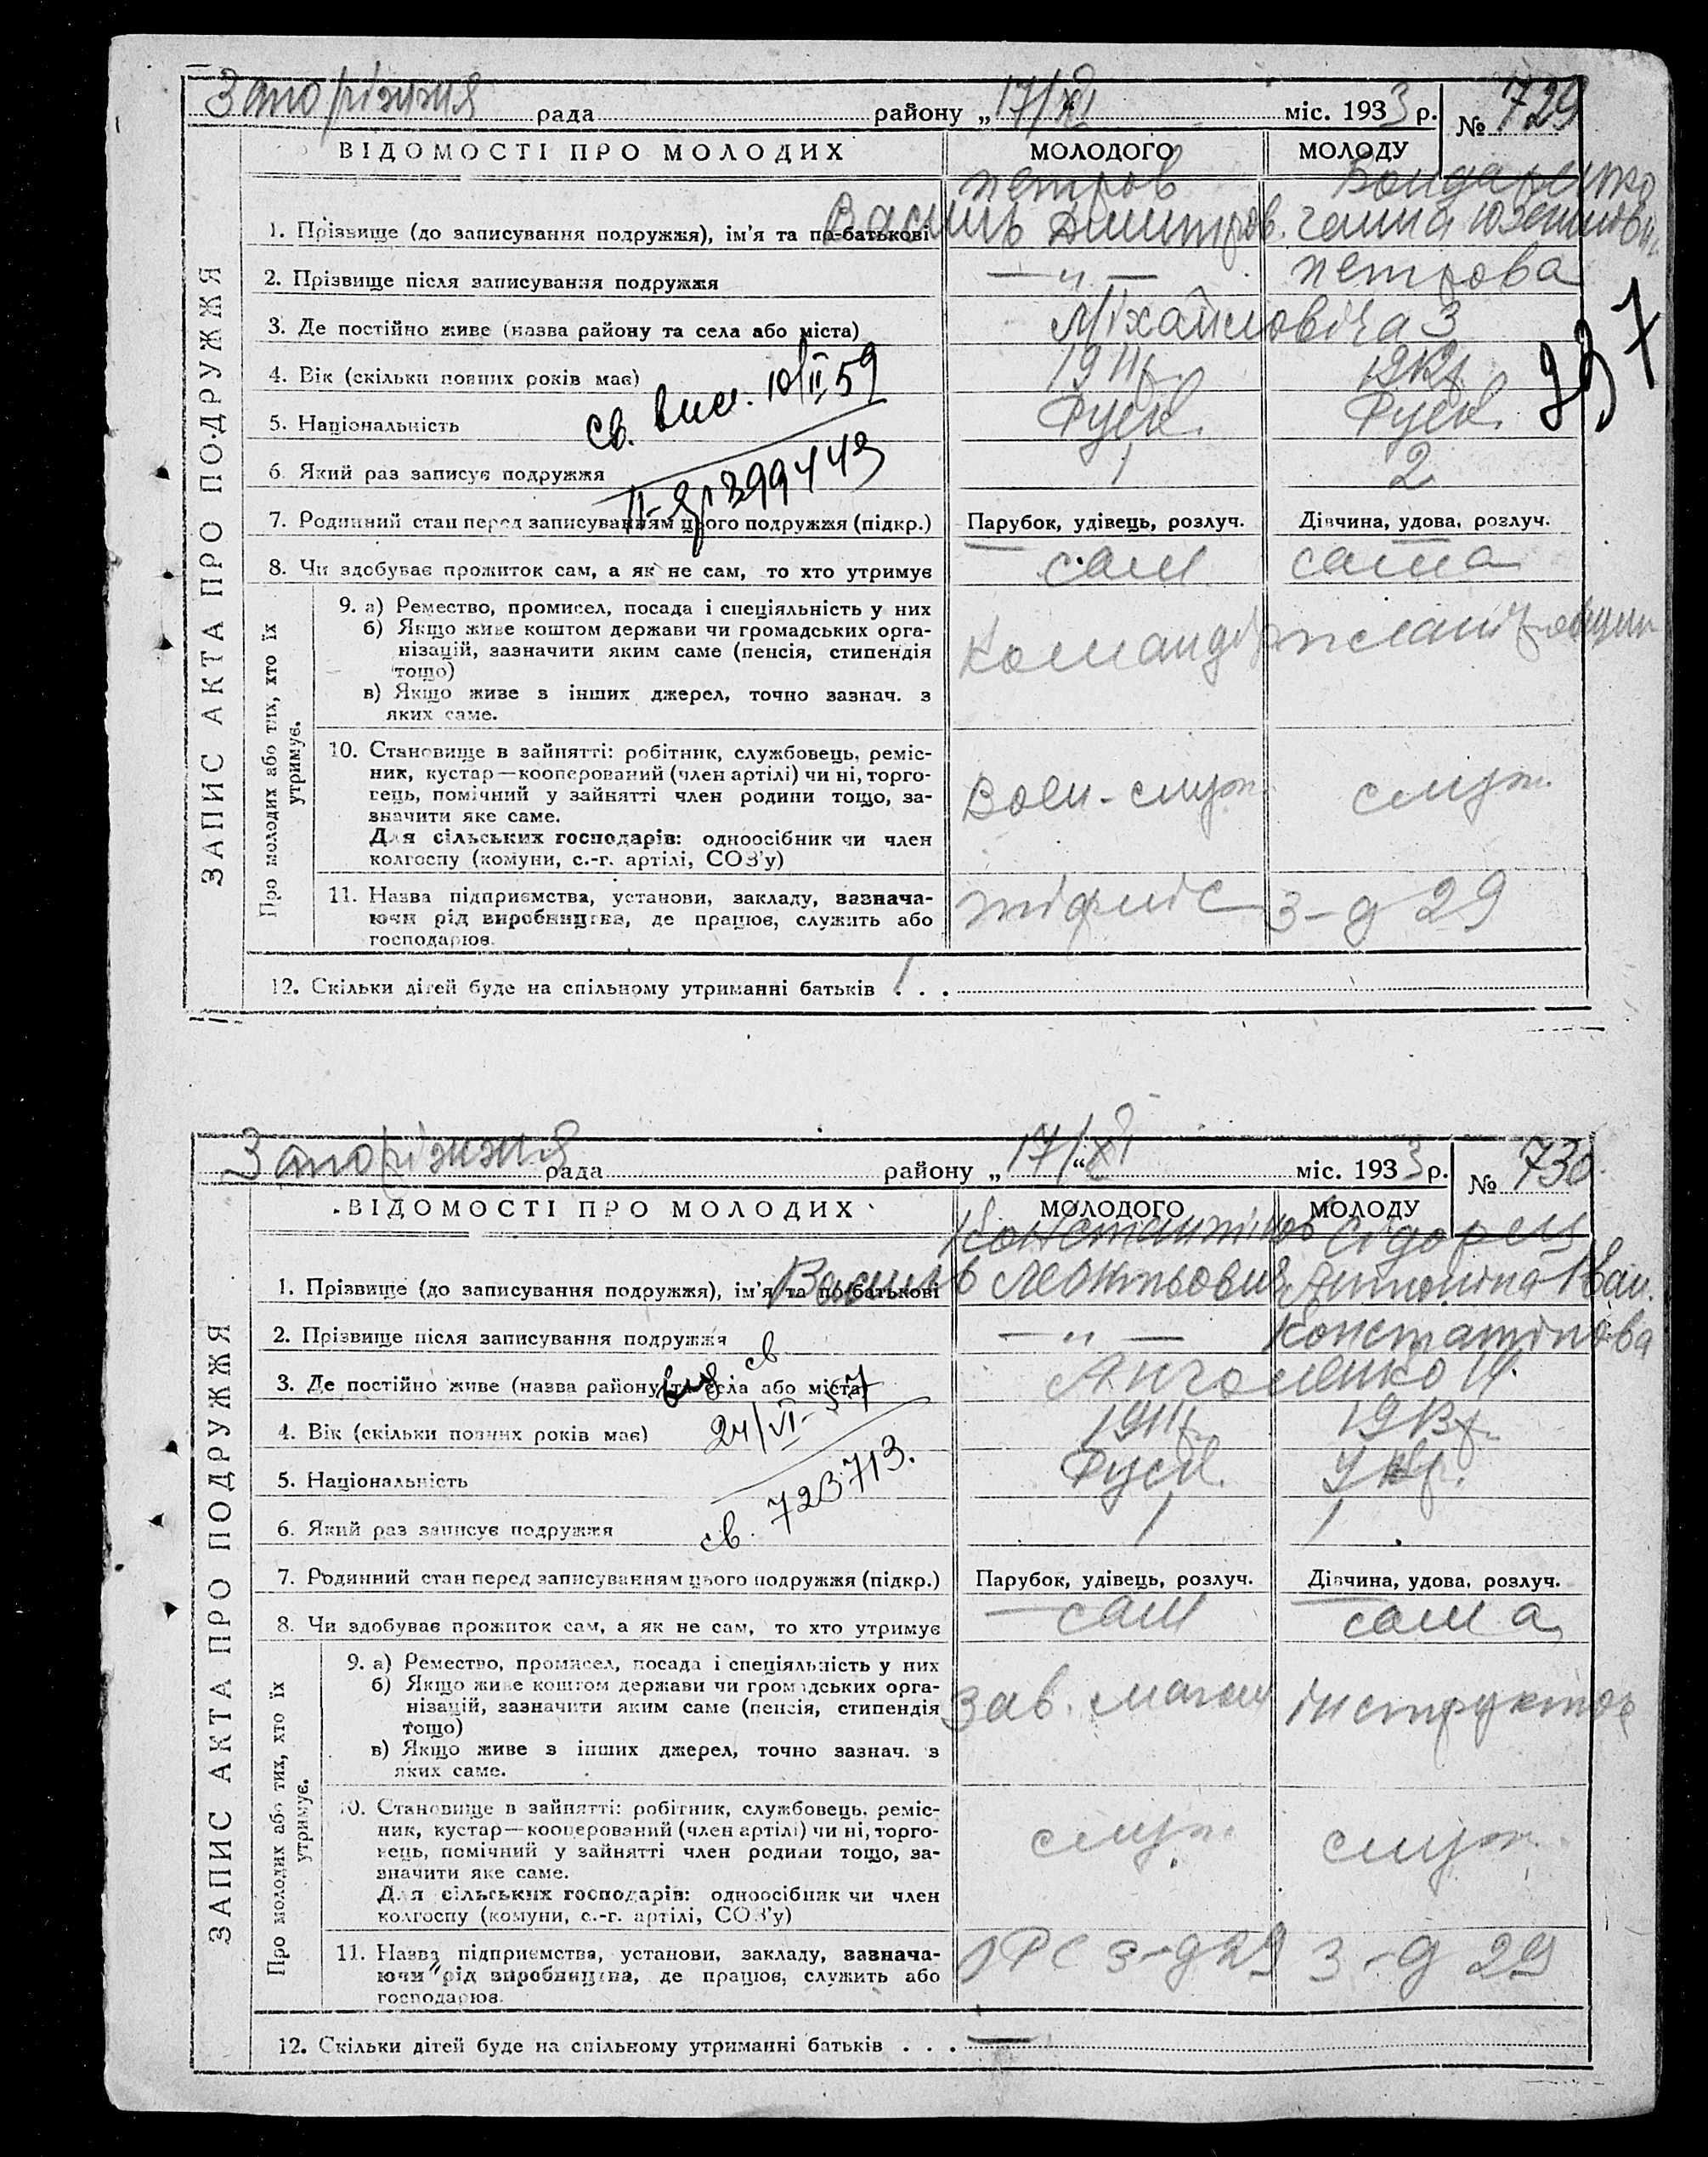 Запоріжжя рада району „17/XI“ міс. 1933 р. № 729
ВІДОМОСТІ ПРО МОЛОДИХ МОЛОДОГО МОЛОДУ
Петров Бондаренко
1. Прізвище (до записування подружжя), ім'я та по-батькові Василь Дмитров. Ганна
2. Прізвище після записування подружжя — „ — Петрова
3. Де постійно живе (назва району та села або міста) Міхайловіча 3
4. Вік (скільки повних років має) 1911р.
5. Національність Руск. Руск.
св. вис. 10/II 59
6. Який раз записує подружжя 1 2
399443
7. Родинний стан перед записуванням цього подружжя (підкр.) Парубок, удівець, розлуч. Дівчина, удова, розлуч.
8. Чи здобуває прожиток сам, а як не сам, то хто утримує сам сама
ЗАПИС АКТА ПРО ПОДРУЖЖЯ
Про молодих або тих, хто їх утримує.
9. а) Ремество, промисел, посада і спеціяльність у них
б) Якщо живе коштом держави чи громадських орга-
нізацій, зазначити яким саме (пенсія, стипендія
тощо)
Командір
в) Якщо живе з інших джерел, точно зазнач. з
яких саме.
10. Становище в зайнятті: робітник, службовець, реміс-
ник, кустар—кооперований (член артілі) чи ні, торго-
вець, помічний у зайнятті член родини тощо, за-
значити яке саме.
Воен-служ. служ.
Для сільських господарів: одноосібник чи член
колгоспу (комуни, с.-г. артілі, СОЗ'у)
11. Назва підприємства, установи, закладу, зазнача-
ючи рід виробництва, де працює, служить або
господарює.
з-д 29
12. Скільки дітей буде на спільному утриманні батьків . . . 1
937
Запоріжжя рада району „17/XI“ міс. 1933 р. № 730
ВІДОМОСТІ ПРО МОЛОДИХ МОЛОДОГО МОЛОДУ
Константінов Сідорец
1. Прізвище (до записування подружжя), ім'я та по-батькові Василь Антоніна Іван.
2. Прізвище після записування подружжя — „ — Констатінова
3. Де постійно живе (назва району та села або міста)
вид св
24/VI-57
4. Вік (скільки повних років має) 1911р. 1913р.
5. Національність Руск. Укр.
св. 723713.
6. Який раз записує подружжя 1 1
7. Родинний стан перед записуванням цього подружжя (підкр.) Парубок, удівець, розлуч. Дівчина, удова, розлуч.
8. Чи здобуває прожиток сам, а як не сам, то хто утримує сам сама
ЗАПИС АКТА ПРО ПОДРУЖЖЯ
Про молодих або тих, хто їх утримує.
9. а) Ремество, промисел, посада і спеціяльність у них
б) Якщо живе коштом держави чи громадських орга-
нізацій, зазначити яким саме (пенсія, стипендія
тощо)
Зав. магаз інструктор
в) Якщо живе з інших джерел, точно зазнач. з
яких саме.
10. Становище в зайнятті: робітник, службовець, реміс-
ник, кустар—кооперований (член артілі) чи ні, торго-
вець, помічний у зайнятті член родини тощо, за-
значити яке саме.
служ. служ.
Для сільських господарів: одноосібник чи член
колгоспу (комуни, с.-г. артілі, СОЗ'у)
11. Назва підприємства, установи, закладу, зазнача-
ючи рід виробництва, де працює, служить або
господарює.
з-д 29 з-д 29
12. Скільки дітей буде на спільному утриманні батьків . . . —